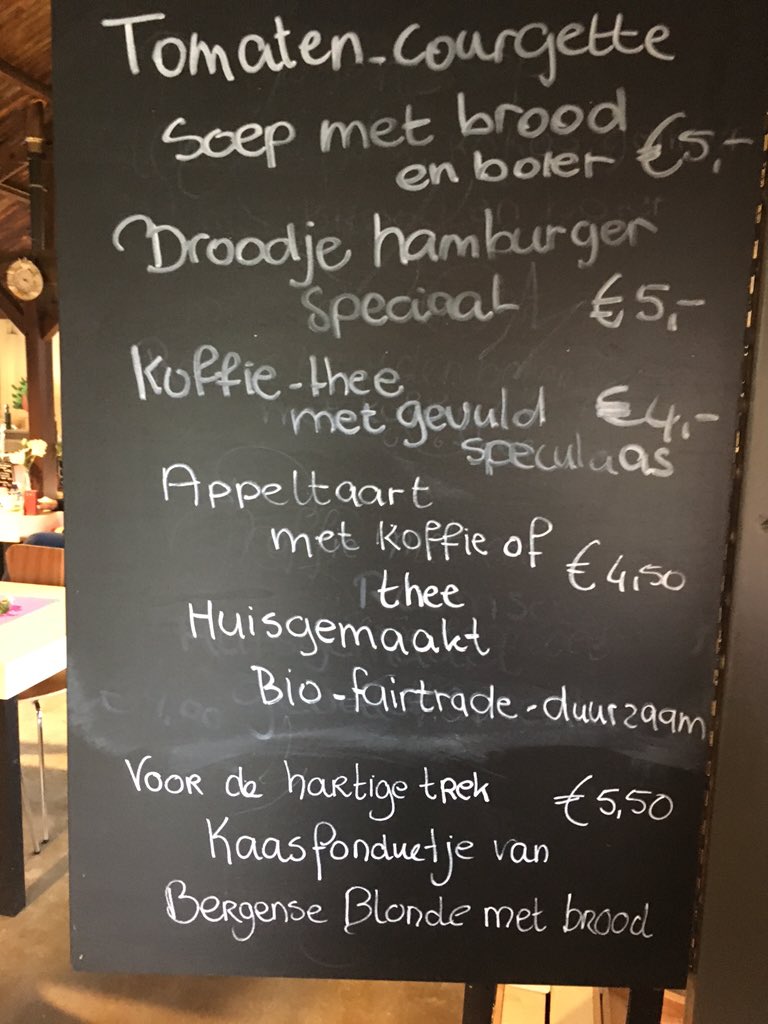 Tomaten-courgette
Soep met brood
en boter €5,-
Broodje hamburger
speciaal €5,-
Koffie-thee
met gevuld €4,-
speculaas
Appeltaart
met koffie of €4,50
thee
Huisgemaakt
Bio-fairtrade-duurzaam
Voor de hartige trek €5,50
Kaasfonduetje van
Bergense Blonde met brood